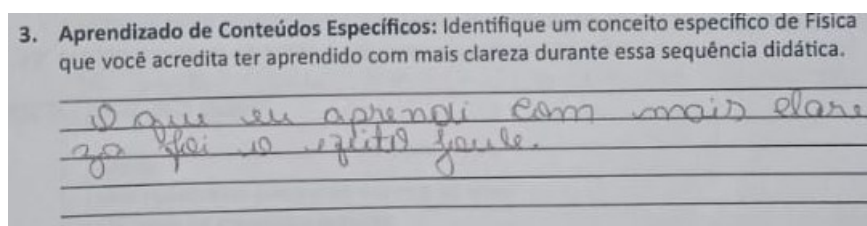 3. Aprendizado de Conteúdos Específicos: Identifique um conceito específico de Física
que você acredita ter aprendido com mais clareza durante essa sequência didática.
O que eu aprendi com mais clare
za foi o efeito joule.